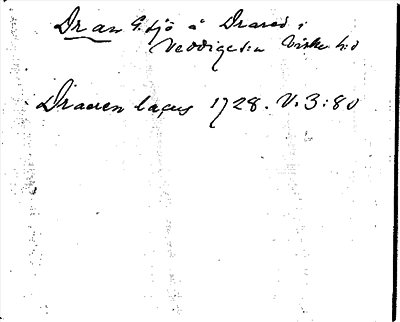 Dran G. sjö å Drared i
Veddige s:n Viske h:d
Draeen lacus 1728. V. 3:80